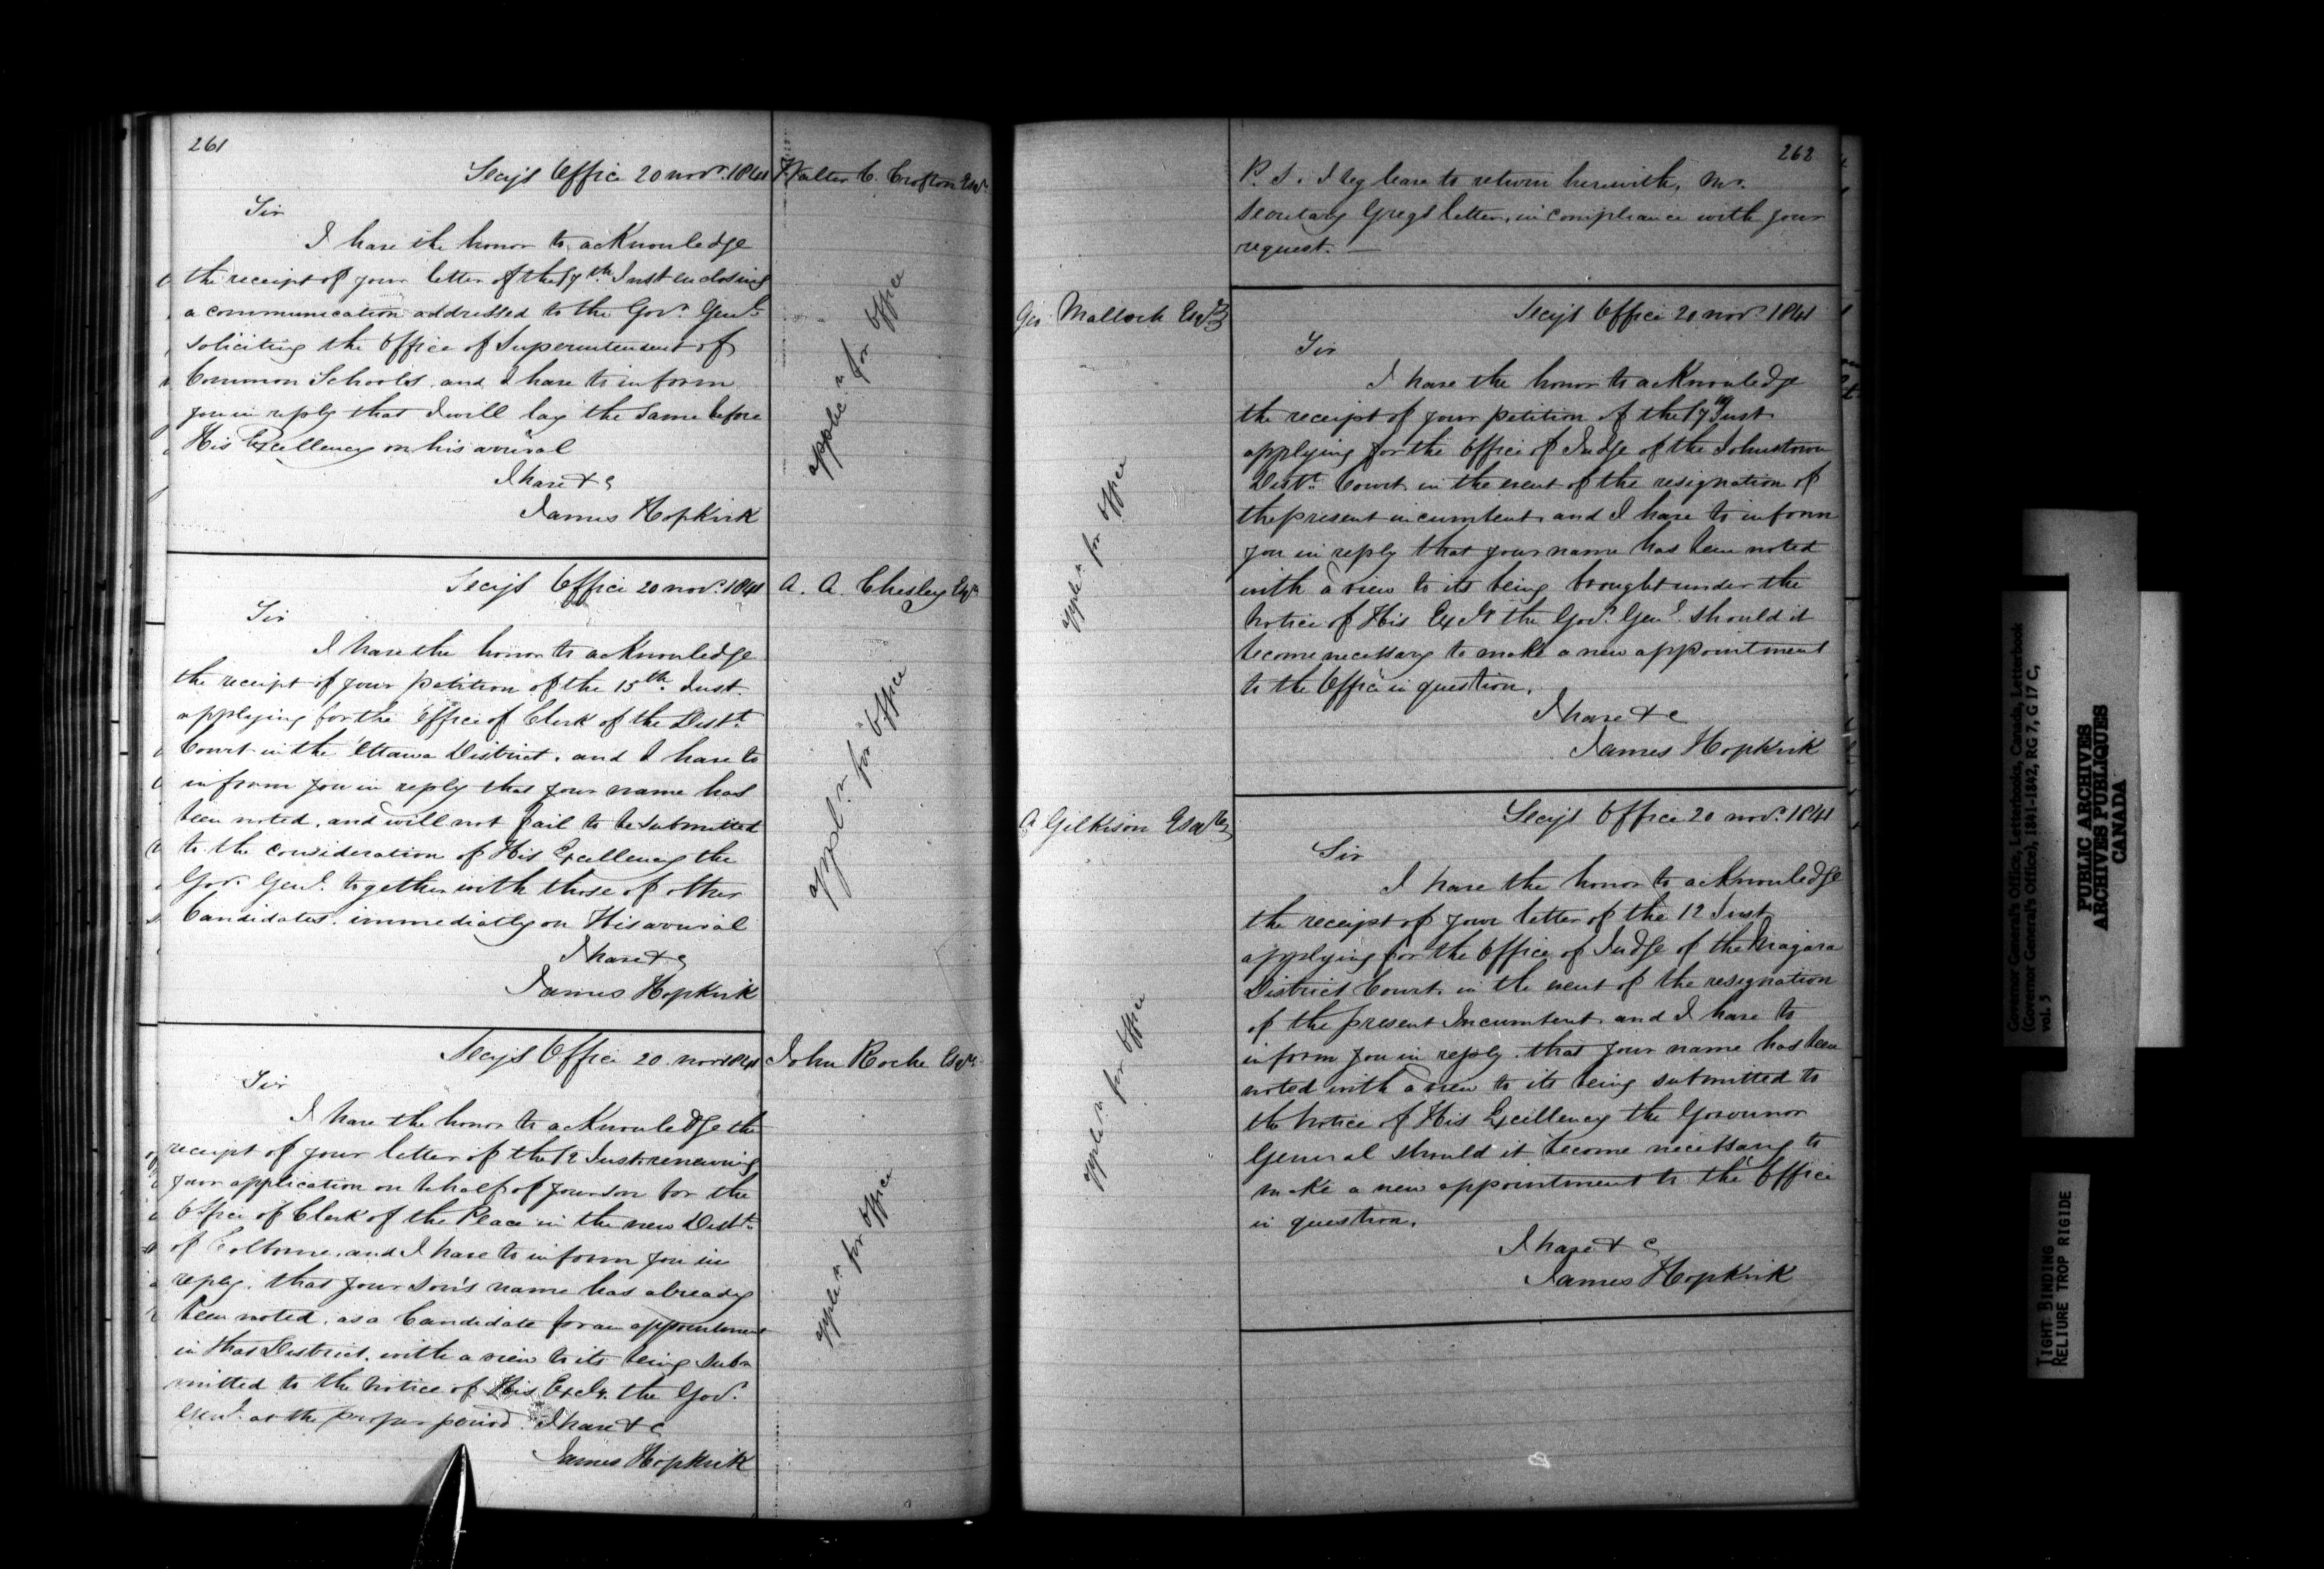 261
Secy's Office 20 Novr. 1841
Walter C. Crofton Esqr
Sir
I have the honor to acknowledge
the receipt of your letter of the 17th. Inst enclosing
a communication addressed to the Govr. Genl.
soliciting the Office of Superintendent of
Common Schools, and I have to inform
you in reply that I will lay the same before
His Excellency on his arrival
I have &c
James Hopkirk
applicn for office
Secy's Office 20 Novr. 1841
A. A. Chesley Esqr
Sir
I have the honor to acknowledge
the receipt of your petition of the 15th. Inst.
applying for the Office of Clerk of the Distt.
Court in the Ottawa District, and I have to
inform you in reply that your name has
been noted, and will not fail to be submitted
to the consideration of His Excellency the
Govr. Genl. together with those of other
Candidates immediatly on His arrival
I have &c
James Hopkirk
appln. for office
Secy's Office 20. Novr 1841
John Roche Esqr.
Sir
I have the honor to acknowledge the
receipt of your letter of the 12 Inst. renewing
your application on behalf of your son for the
Office of Clerk of the Peace in the new Distt.
of Colborne, and I have to inform you in
reply, that your son's name has already
been noted, as a Candidate for an appointment
in that District, with a view to its being sub-
mitted to the notice of His Excly. the Govr.
Genl. at the proper period. I have &c
James Hopkirk
appln for office
262
P. S. I beg leave to return herewith, Mr.
Secretary Gregs letter, in compliance with your
request. —
Geo Malloch Esqr
Secy's Office 20 Novr. 1841
Sir
I have the honor to acknowledge
the receipt of your petition of the 17th Inst
applying for the Office of Judge of the Johnstown
Distt. Court in the event of the resignation of
the present incumbent, and I have to inform
you in reply that your name has been noted
with a view to its being brought under the
notice of His Excly the Govr. Genl. should it
become necessary to make a new appointment
to the Office in question.
I have &c
James Hopkirk
appln. for office
A Gilkison Esqre
Secy's Office 20 Novr. 1841
Sir
I have the honor to acknowledge
the receipt of your letter of the 12 Inst
applying for the Office of Judge of the Niagara
District Court, in the event of the resignation
of the present Incumbent, and I have to
inform you in reply, that your name has been
noted with a view to its being submitted to
the notice of His Excellency the Governor
General should it become necessary to
make a new appointment to the Office
in question.
I have & c
James Hopkirk
appln for office
Governor General's Office, Letterbooks, Canada, Letterbook
(Governor General's Office), 1841-1842, RG 7, G 17 C,
vol. 5
PUBLIC ARCHIVES
ARCHIVES PUBLIQUES
CANADA
TIGHT BINDING
RELIURE TROP RIGIDE